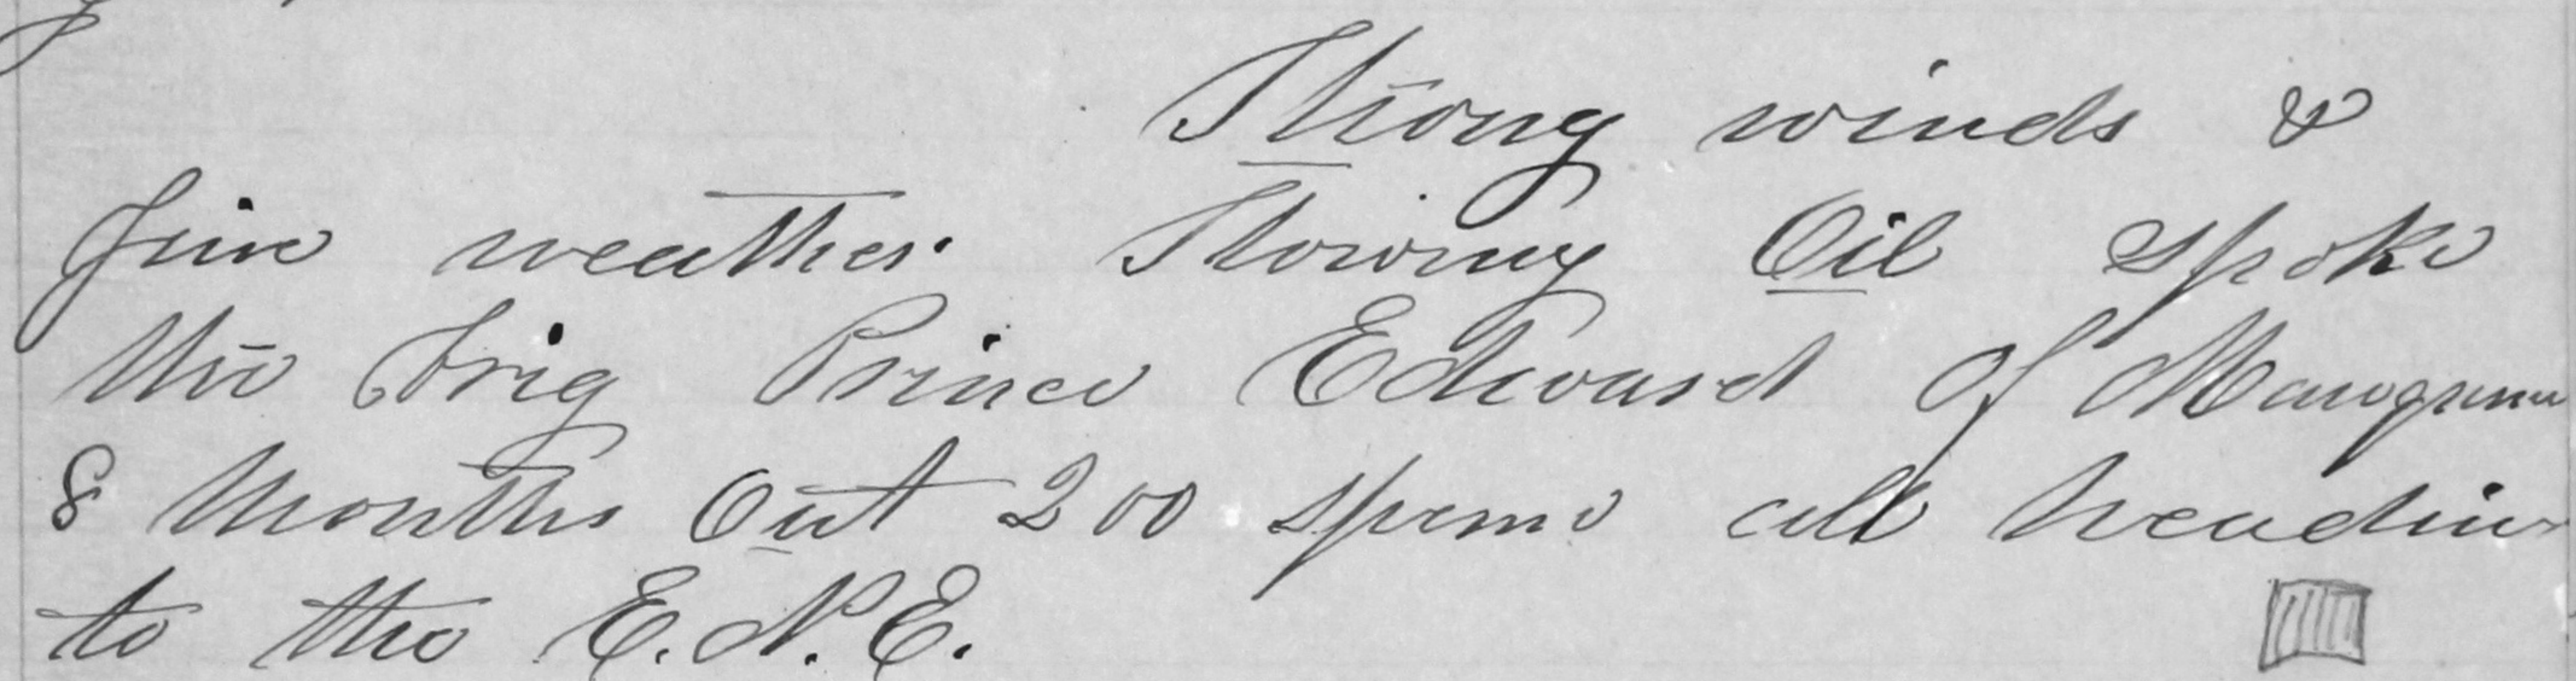 Strong winds &
fine weather Stowing Oil spoke
the brig Prince Edward of
8 months out 200 sperm all
to the E.N.E.